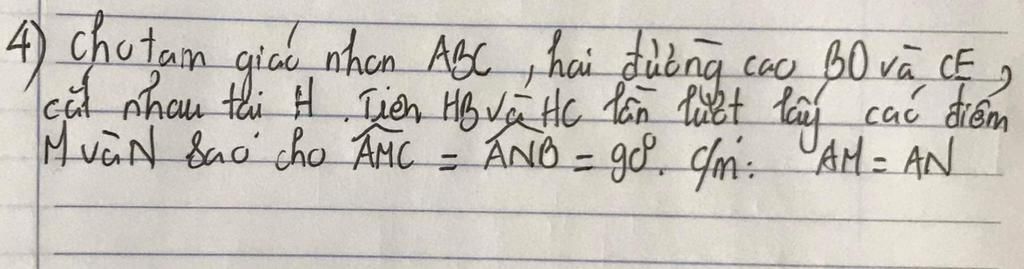 4) Cho tam giác nhọn ABC, hai đường cao BD và CE,
cắt nhau tại H. Trên HB và HC lần lượt lấy các điểm
M và N sao cho AMC = ANB = 90°. C/m: AM = AN